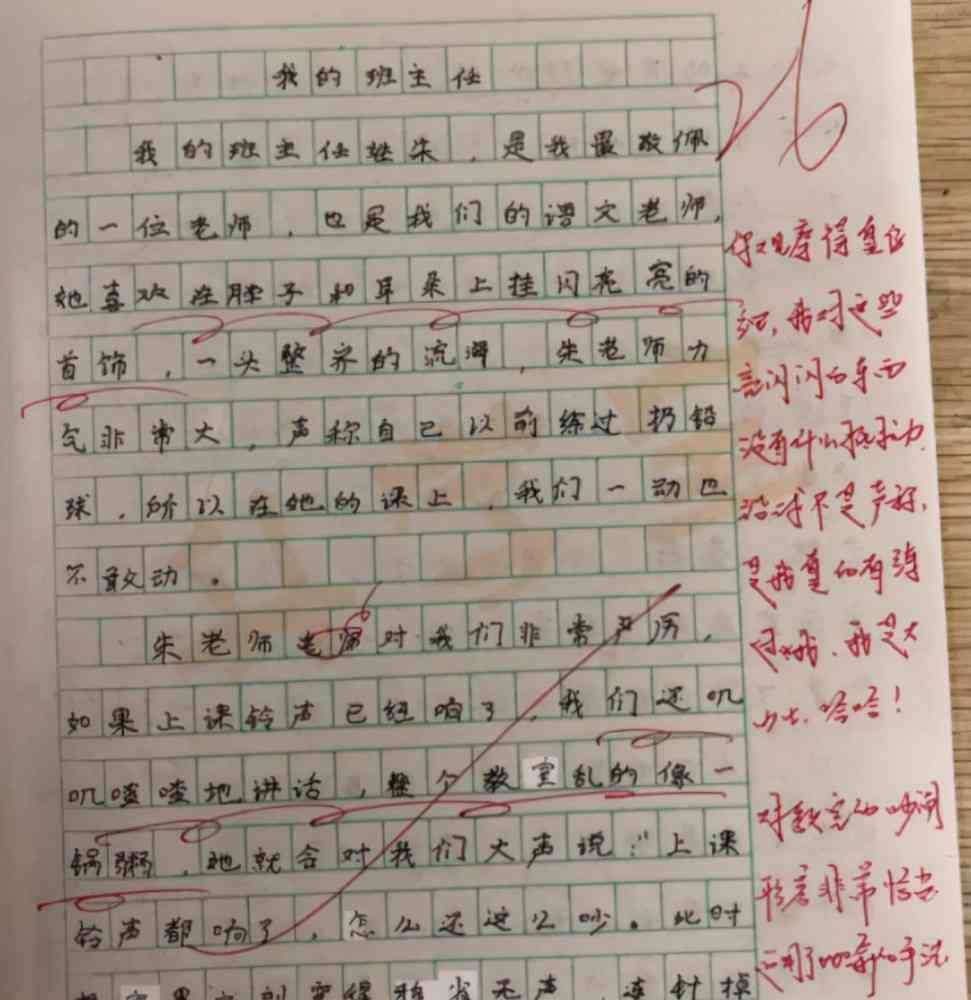 我的班主任
26
我的班主任姓朱，是我最敬佩
的一位老师，也是我们的语文老师，
她喜欢在脖子和耳朵上挂闪亮亮的
首饰，一头整齐的流海，朱老师力
气非常大，声称自己以前练过扔铅
球，所以在她的课上，我们一动也
不敢动。
朱老师老师对我们非常严厉，
如果上课铃声已经响了，我们还叽
叽喳喳地讲话，整个教室乱的像一
锅粥，她就会对我们大声说：“上课
铃声都响了，怎么还这么吵。此时
教室里立刻变得鸦雀无声，连针掉
你观察得
我对这些
亮闪闪的东西
没有什么抵抗力
不是声称，
是我真的有练
过哦，我是大
力士，哈哈！
对教室的吵闹
形容非常恰当